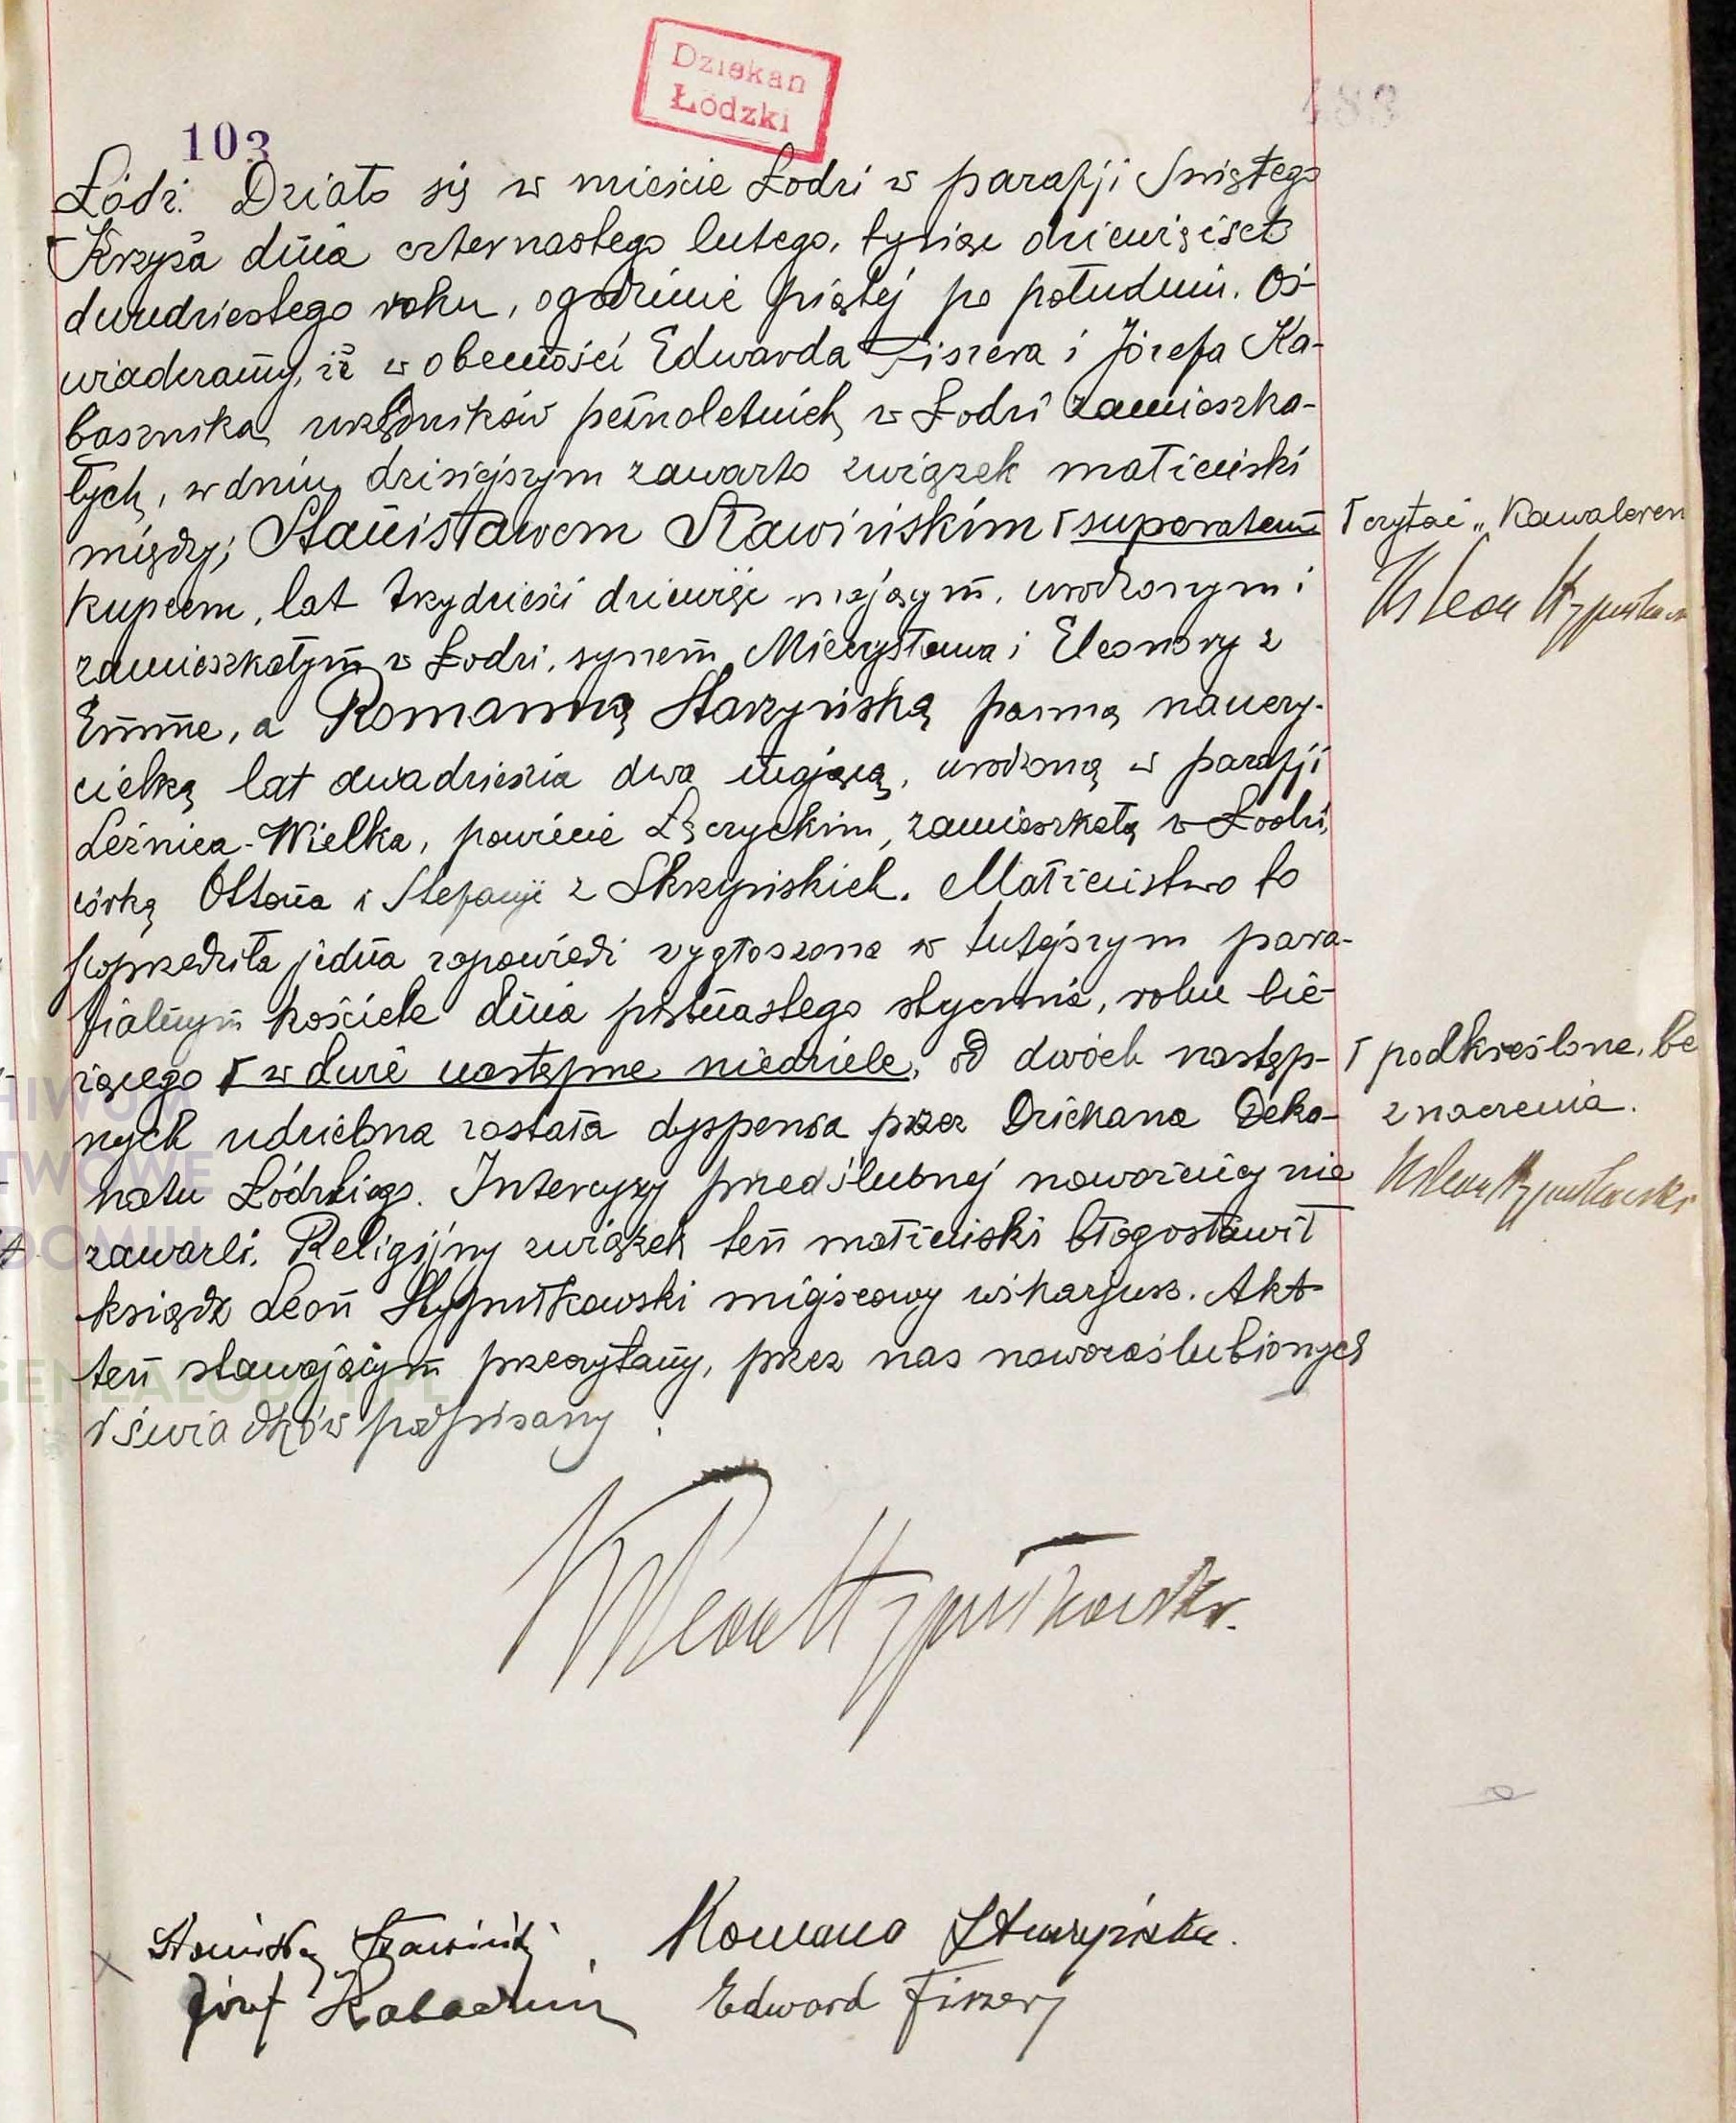 Dziekan
Łódzki
183
103
Łódź. Działo się w mieście Łodzi w parafji Świętego
Krzyża dnia czternastego lutego, tysiąc dziewięćset
dwudziestego roku, o godzinie piątej po południu. Oś-
wiadczamy, iż w obecności Edwarda Fiszera i Józefa Ka-
basznika, urzędników pełnoletnich, w Łodzi zamieszka-
łych, w dniu dzisiejszym zawarto związek małżeński
między; Stanisławem Stawińskim Γ suporatem
Γ czytać „Kawalerem
kupcem, lat trzydzieści dziewięć mającym, urodzonym i
Ks Leon
zamieszkałym w Łodzi, synem Mieczysława i Eleonory z
Emme, a Romanną Starzyńską panną nauczy-
cielką lat dwadzieścia dwa mającą, urodzoną w parafji
Leźnica-Wielka, powiecie Łęczyckim, zamieszkałą w Łodzi,
córką Ottona i Stefanji z Skrzyńskich. Małżeństwo to
poprzedziła jedna zapowiedź wygłoszona w tutejszym para-
fialnym kościele dnia piętnastego stycznia, roku bie-
żącego Γ w dwie następne niedziele, od dwóch następ-
Γ podkreślone, be
nych udzielona została dyspensa przez Dziekana Deka-
znaczenia.
natu Łódzkiego. Intercyzy przedślubnej nowożeńcy nie
Ks Leon
zawarli. Religijny związek ten małżeński błogosławił
ksiądz Leon Stypułkowski miejscowy wikarjusz. Akt
ten stawającym przeczytany, przez nas nowozaślubionych
i świadków podpisany.
Ks Leon Stypułkowski.
Stanisław Stawiński, Romana Starzyńska.
Józef Kabasznik Edward Fiszer